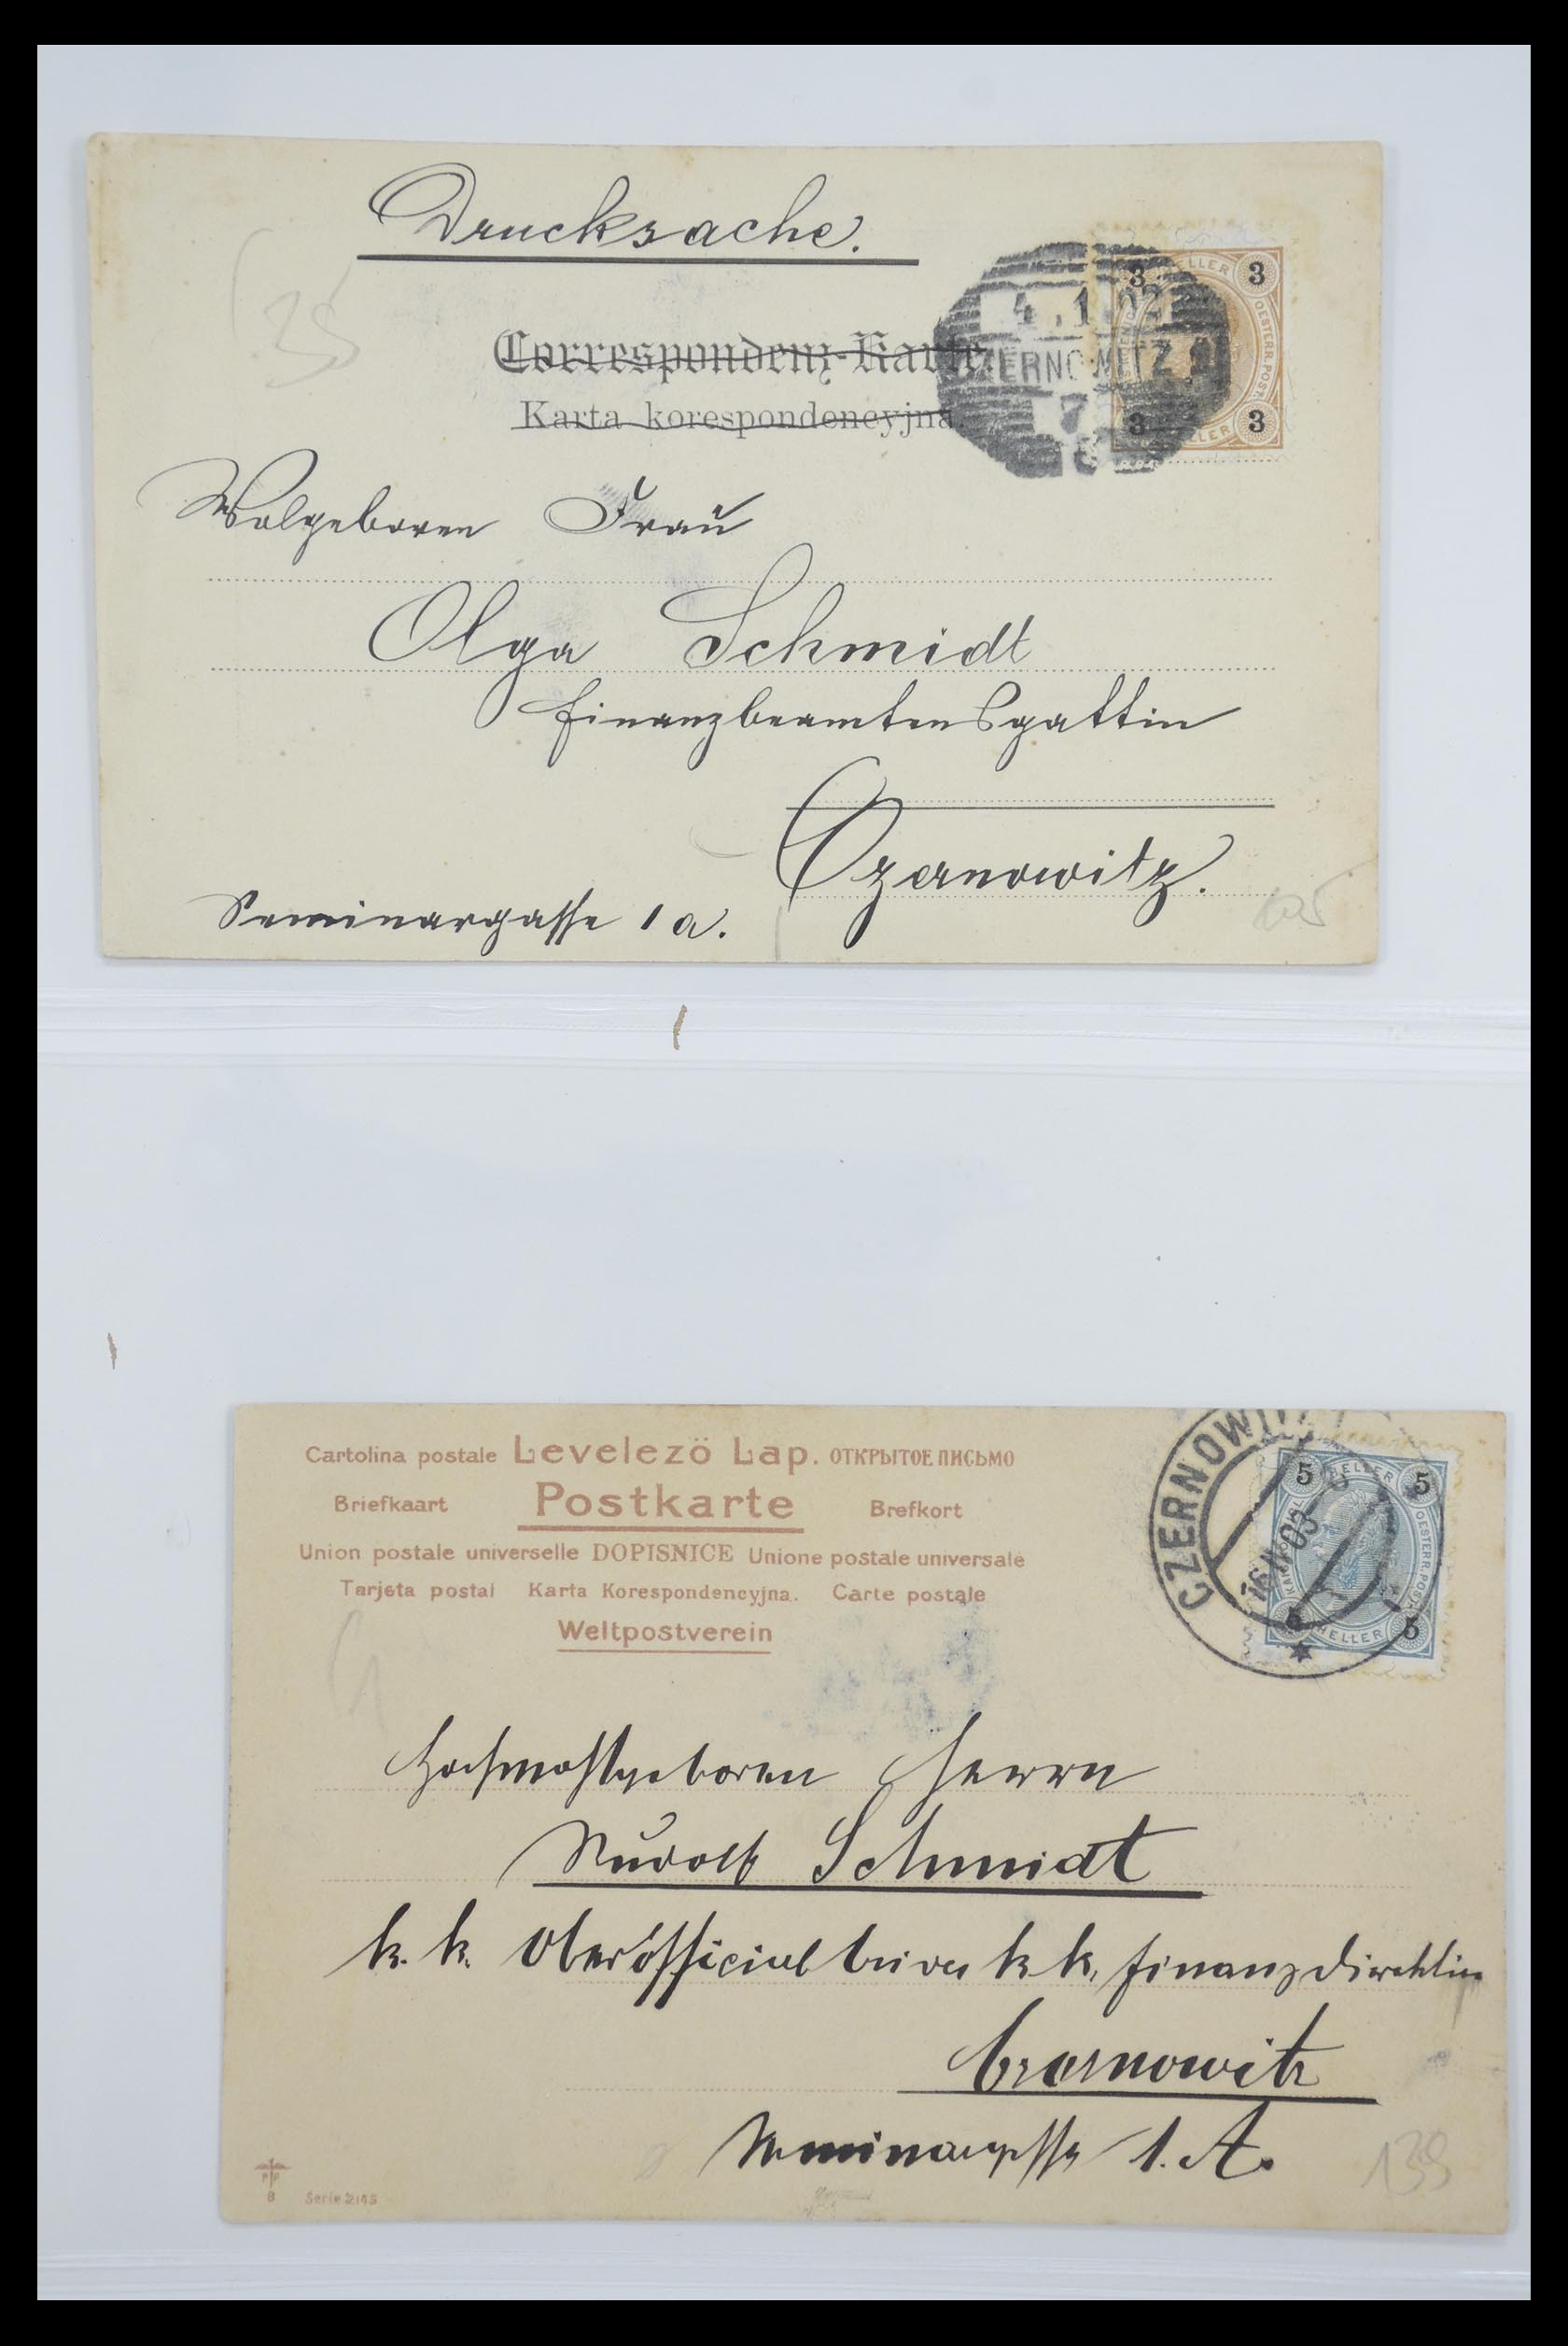 Drucksache.
35
Correspondenz-Karte.
Karta korespondencyjna
4.1.02
CZERNOWITZ 2
7
3 HELLER 3
OESTERR.POST.
3 HELLER 3
Wolgeboren Frau
Olga Schmidt
Finanzbeamtensgattin
Czernowitz.
Seminargasse 1a.
Cartolina postale Levelezö Lap. ОТКРЫТОЕ ПИСЬМО
Briefkaart Postkarte Brefkort
Union postale universelle DOPISNICE Unione postale universale
Tarjeta postal Karta Korespondencyjna. Carte postale
Weltpostverein
CZERNOWITZ
5 HELLER 5
OESTERR.POST.
HELLER 5
Hochwohlgeboren Herrn
Rudolf Schmidt
k. k. Oberofficial bei der k. k. Finanzdirektion
Czernowitz
Seminargasse 1. A.
139
8 Serie 2145